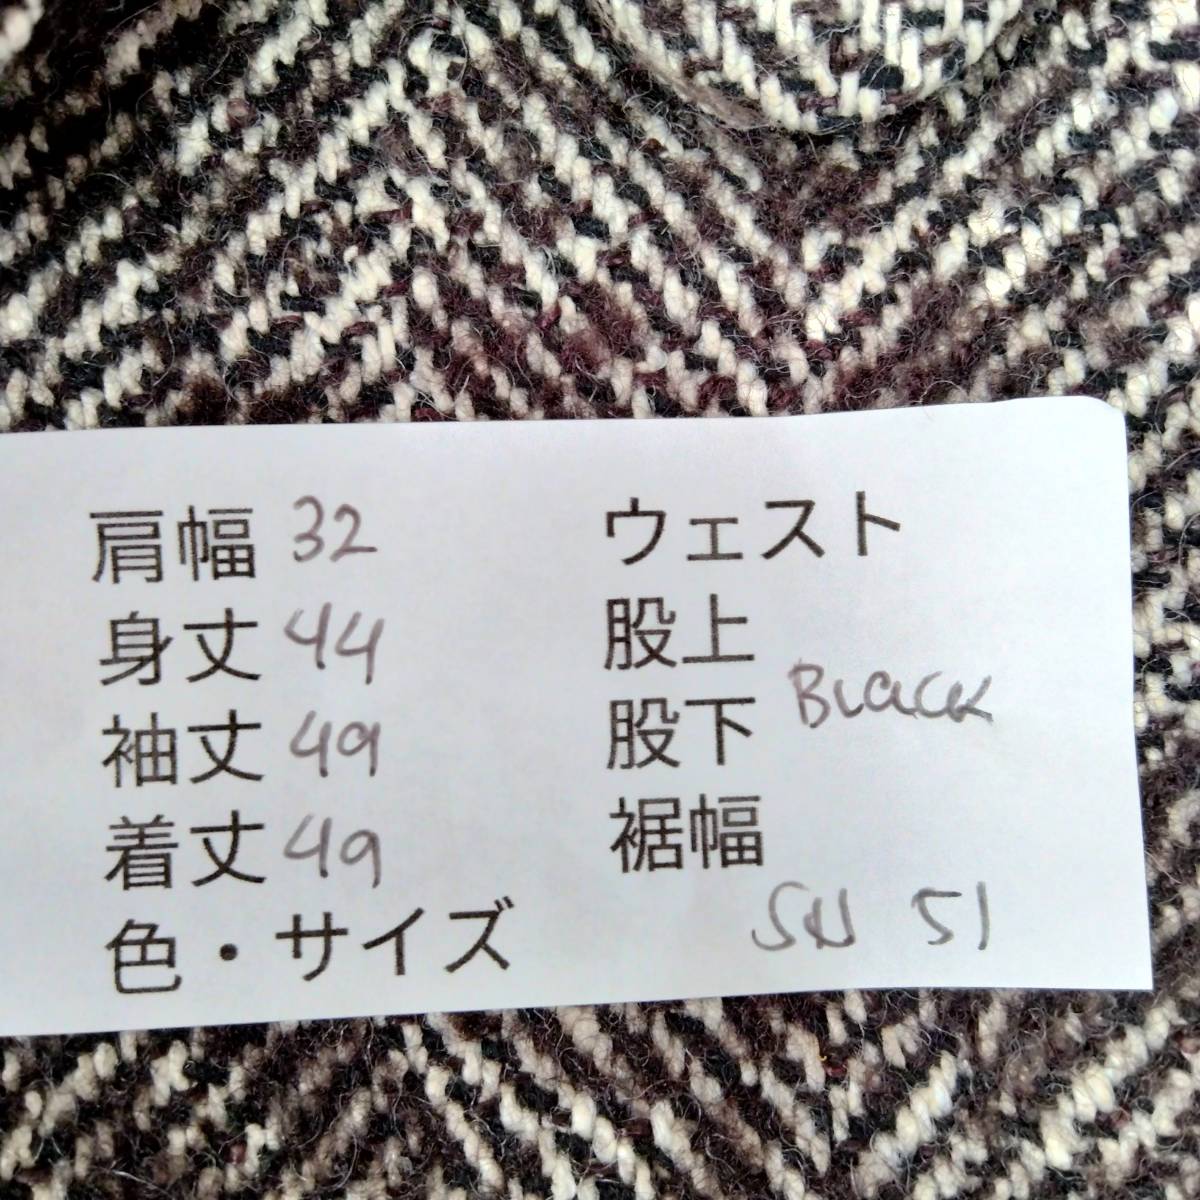 肩幅 32
身丈 44
袖丈 49
着丈 49
色・サイズ
ウェスト
股上
股下 Black
裾幅
51